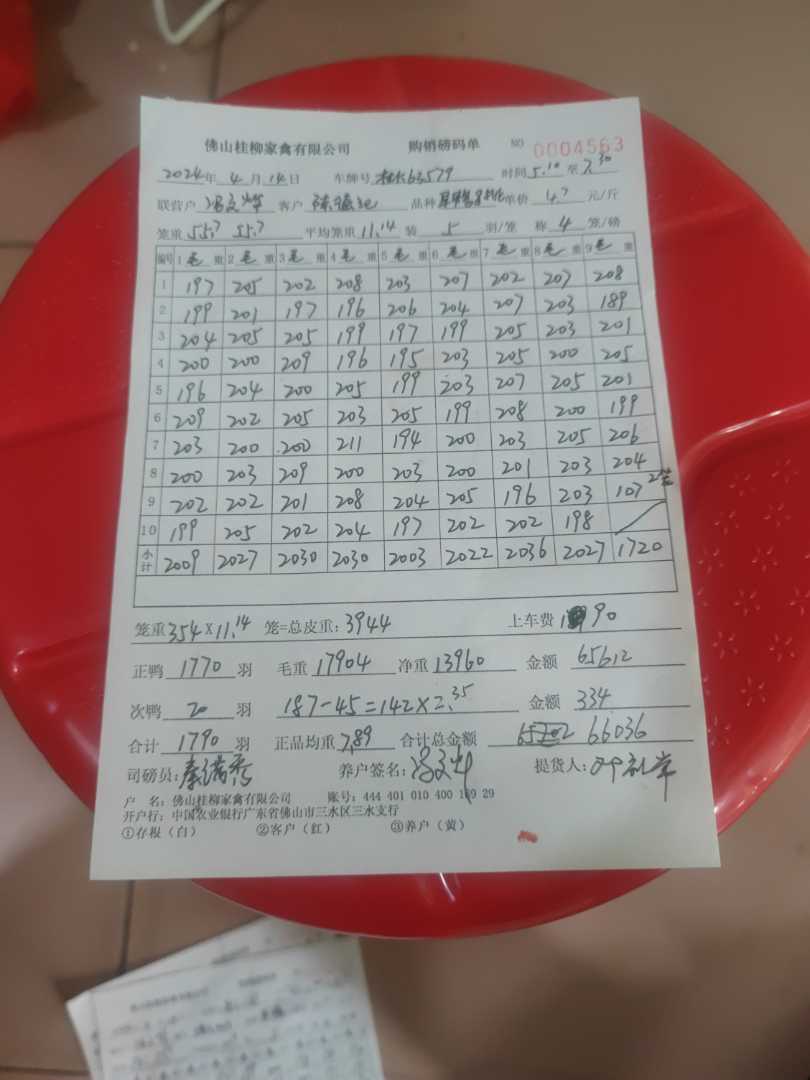 佛山桂柳家禽有限公司 购销磅码单 NO 0004563
2024年 4月 14日 车牌号 63579 时间 5.10 至 7.30
联营户 客户 品种 单价 4.7 元/斤
笼重 55.7 55.7 平均笼重 11.14 装 5 羽/笼 称 4 笼/磅
编号 1 毛 重 2 毛 重 3 毛 重 4 毛 重 5 毛 重 6 毛 重 7 毛 重 8 毛 重 9 毛 重
1 197 205 202 208 203 207 202 207 208
2 199 201 197 196 206 204 207 203 189
3 204 205 205 199 197 199 205 203 201
4 200 200 209 196 195 203 205 200 205
5 196 204 200 205 199 203 207 205 201
6 209 202 205 203 205 199 208 200 199
7 203 200 200 211 194 200 203 205 206
8 200 203 209 200 203 200 201 203 204
9 202 202 201 208 204 205 196 203 107 2笼
10 199 205 202 204 197 202 202 198
小计 2009 2027 2030 2030 2003 2022 2036 2027 1720
笼重 354 X 11.14 笼=总皮重: 3944 上车费 90
正鸭 1770 羽 毛重 17904 净重 13960 金额 65612
次鸭 20 羽 187-45=142×2.35 金额 334
合计 1790 羽 正品均重 7.89 合计总金额 66036
司磅员: 秦满秀 养户签名: 提货人:
户 名: 佛山桂柳家禽有限公司 账号: 444 401 010 400 29
开户行: 中国农业银行广东省佛山市三水区三水支行
①存根(白) ②客户(红) ③养户(黄)